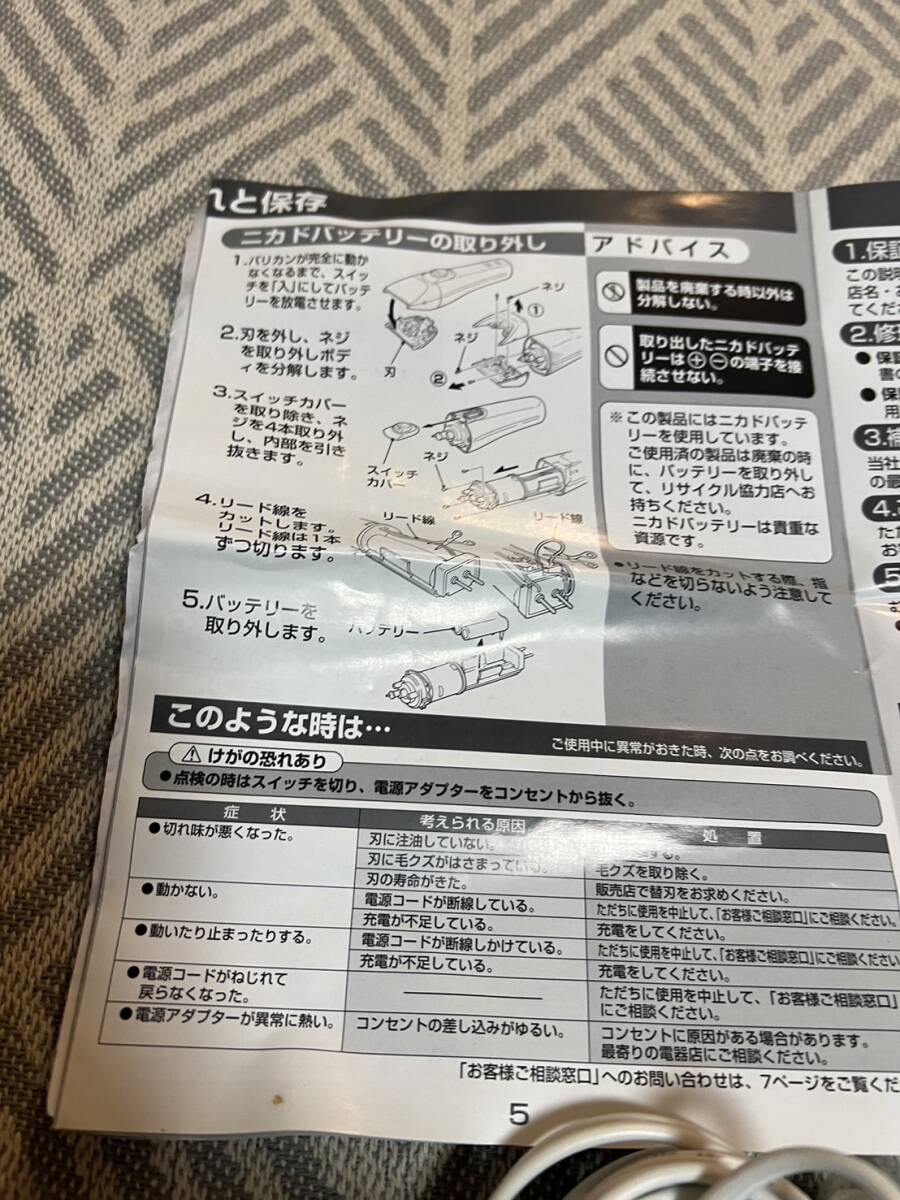 れと保存
ニカドバッテリーの取り外し
1.バリカンが完全に動か
なくなるまで、スイッ
チを「入」にしてバッテ
リーを放電させます。
2.刃を外し、ネジ
を取り外しボデ
ィを分解します。
3.スイッチカバー
を取り除き、ネ
ジを4本取り外
し、内部を引き
抜きます。
4.リード線を
カットします。
リード線は1本
ずつ切ります。
5.バッテリーを
取り外します。
ネジ
①
ネジ
刃
②
スイッチ
カバー
ネジ
リード線
リード線
バッテリー
アドバイス
製品を廃棄する時以外は
分解しない。
取り出したニカドバッテ
リーは⊕⊖の端子を接
続させない。
※この製品にはニカドバッテ
リーを使用しています。
ご使用済の製品は廃棄の時
に、バッテリーを取り外し
て、リサイクル協力店へお
持ちください。
ニカドバッテリーは貴重な
資源です。
●リード線をカットする際、指
などを切らないよう注意して
ください。
このような時は…
ご使用中に異常がおきた時、次の点をお調べください。
⚠けがの恐れあり
●点検の時はスイッチを切り、電源アダプターをコンセントから抜く。
症 状 考えられる原因 処 置
●切れ味が悪くなった。 刃に注油していない。 する。
刃に毛クズがはさまっている。 毛クズを取り除く。
刃の寿命がきた。 販売店で替刃をお求めください。
●動かない。 電源コードが断線している。 ただちに使用を中止して、「お客様ご相談窓口」にご相談ください。
充電が不足している。 充電をしてください。
●動いたり止まったりする。 電源コードが断線しかけている。 ただちに使用を中止して、「お客様ご相談窓口」にご相談ください
充電が不足している。 充電をしてください。
●電源コードがねじれて
戻らなくなった。
ただちに使用を中止して、「お客様ご相談窓口」
にご相談ください。
●電源アダプターが異常に熱い。 コンセントの差し込みがゆるい。 コンセントに原因がある場合があります。
最寄りの電器店にご相談ください。
「お客様ご相談窓口」へのお問い合わせは、7ページをご覧くだ
5
1.保証
この説明
店名・お
てくださ
2.修理
●保証
書の
●保証
用
3.補
当社
の最
4.
ただ
お客
5